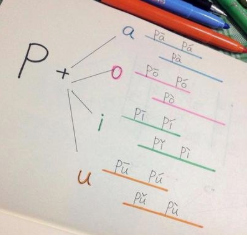 P + a pā pá
pà
o pō pó
pò
i pī pí
pǐ pì
u pū pú
pǔ pù